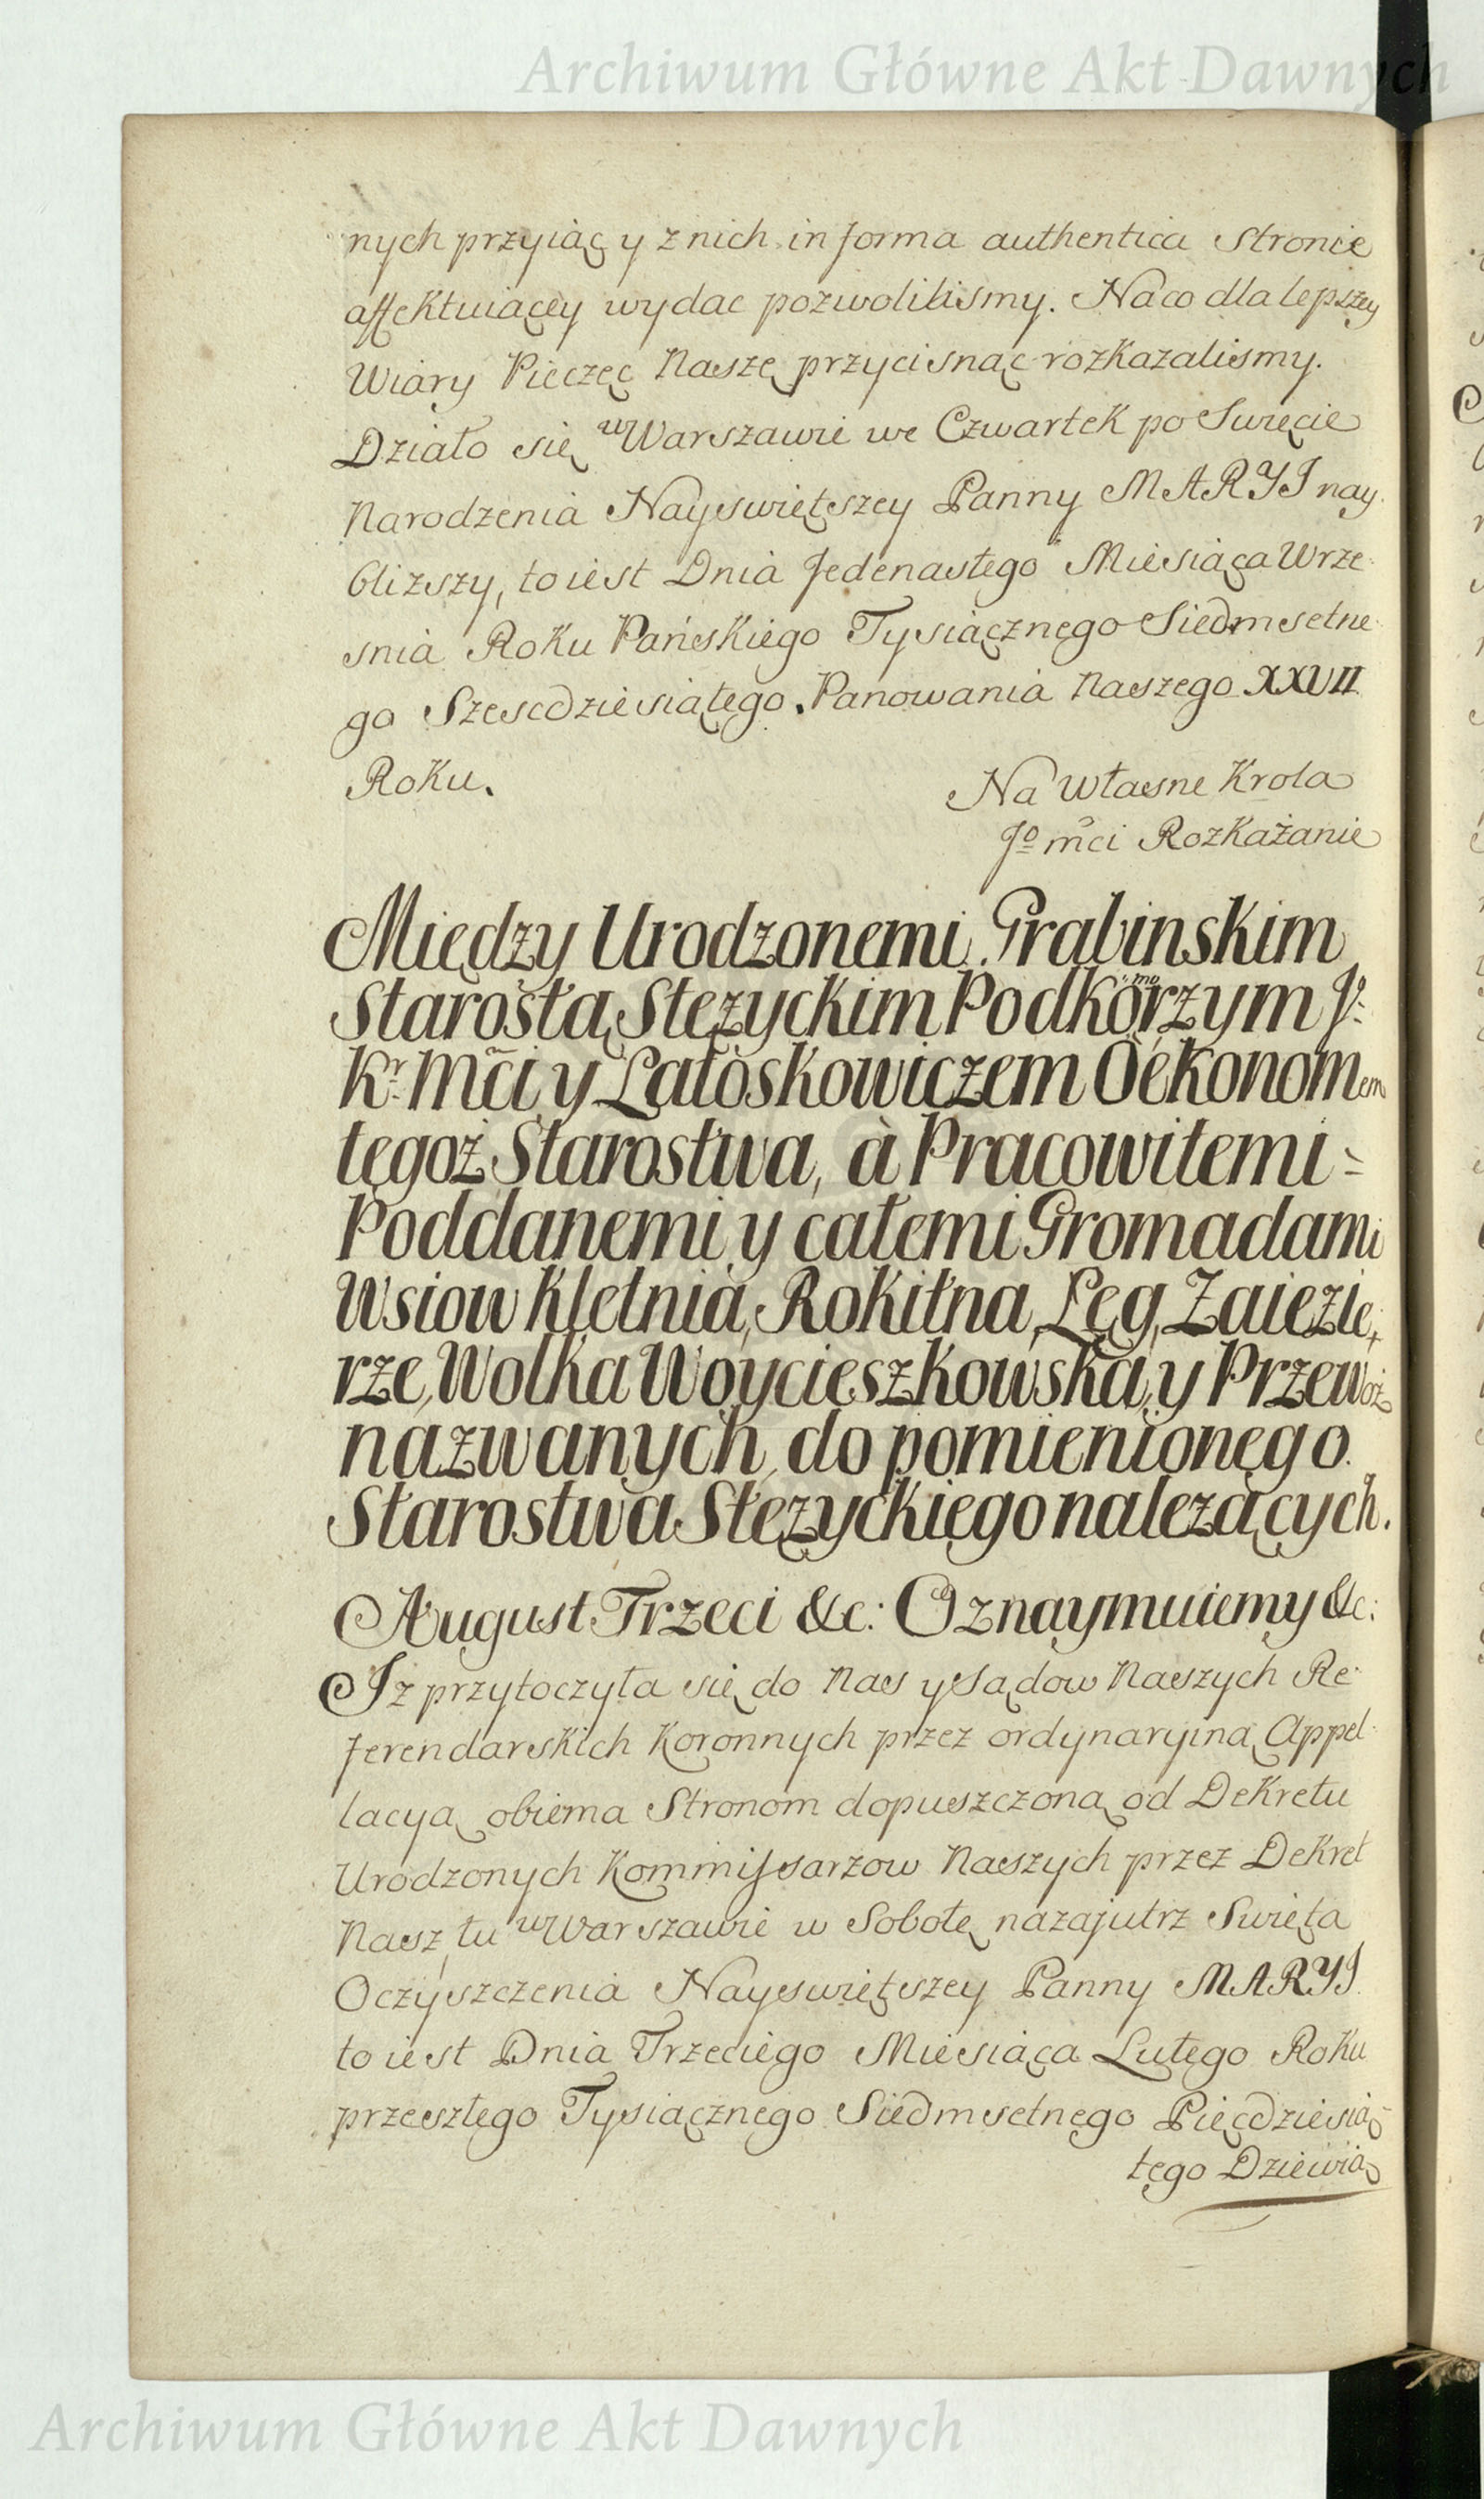 Archiwum Główne Akt Dawnych
nych przyiąć y z nich in forma authentica Stronie
affektuiącey wydac pozwolilismy. Na co dla lepszey
Wiary Pieczęć Naszę przycisnąc rozkazalismy.
Działo się w Warszawie we Czwartek po Swięcie
Narodzenia Nayswiętszey Panny MARYI nay
bliższy, to iest Dnia Jedenastego Miesiąca Wrze
snia Roku Pańskiego Tysiącznego Siedmsetne
go Szescdziesiątego. Panowania Naszego XXVII
Roku.
Na Własne Krola
Jo mći Rozkażanie
Między Urodzonemi Grabinskim
Starostą Stężyckim Podkomorzym Jo
Kr Mći, y Łatoskowiczem Oekonomem
tegoż Starostwa, à Pracowitemi
Poddanemi y całemi Gromadami
Wsiow Kletnia, Rokitna, Łęg, Zaiezie
rze, Wolka Woycieszkowska, y Przewoz
nazwanych, do pomienionego
Starostwa Stężyckiego należących.
August Trzeci &c: Oznaymuiemy &c:
Iz przytoczyła się do Nas y Sądow Naszych Re
ferendarskich Koronnych przez ordynaryiną Appel
lacyą obiema Stronom dopuszczoną od Dekretu
Urodzonych Kommissarzow Naszych przez Dekret
Nasz tu w Warszawie w Sobotę nazajutrz Swięta
Oczyszczenia Nayswiętszey Panny MARYI
to iest Dnia Trzeciego Miesiąca Lutego Roku
przeszłego Tysiącznego Siedmsetnego Pięcdziesią
tego Dziewią
Archiwum Główne Akt Dawnych